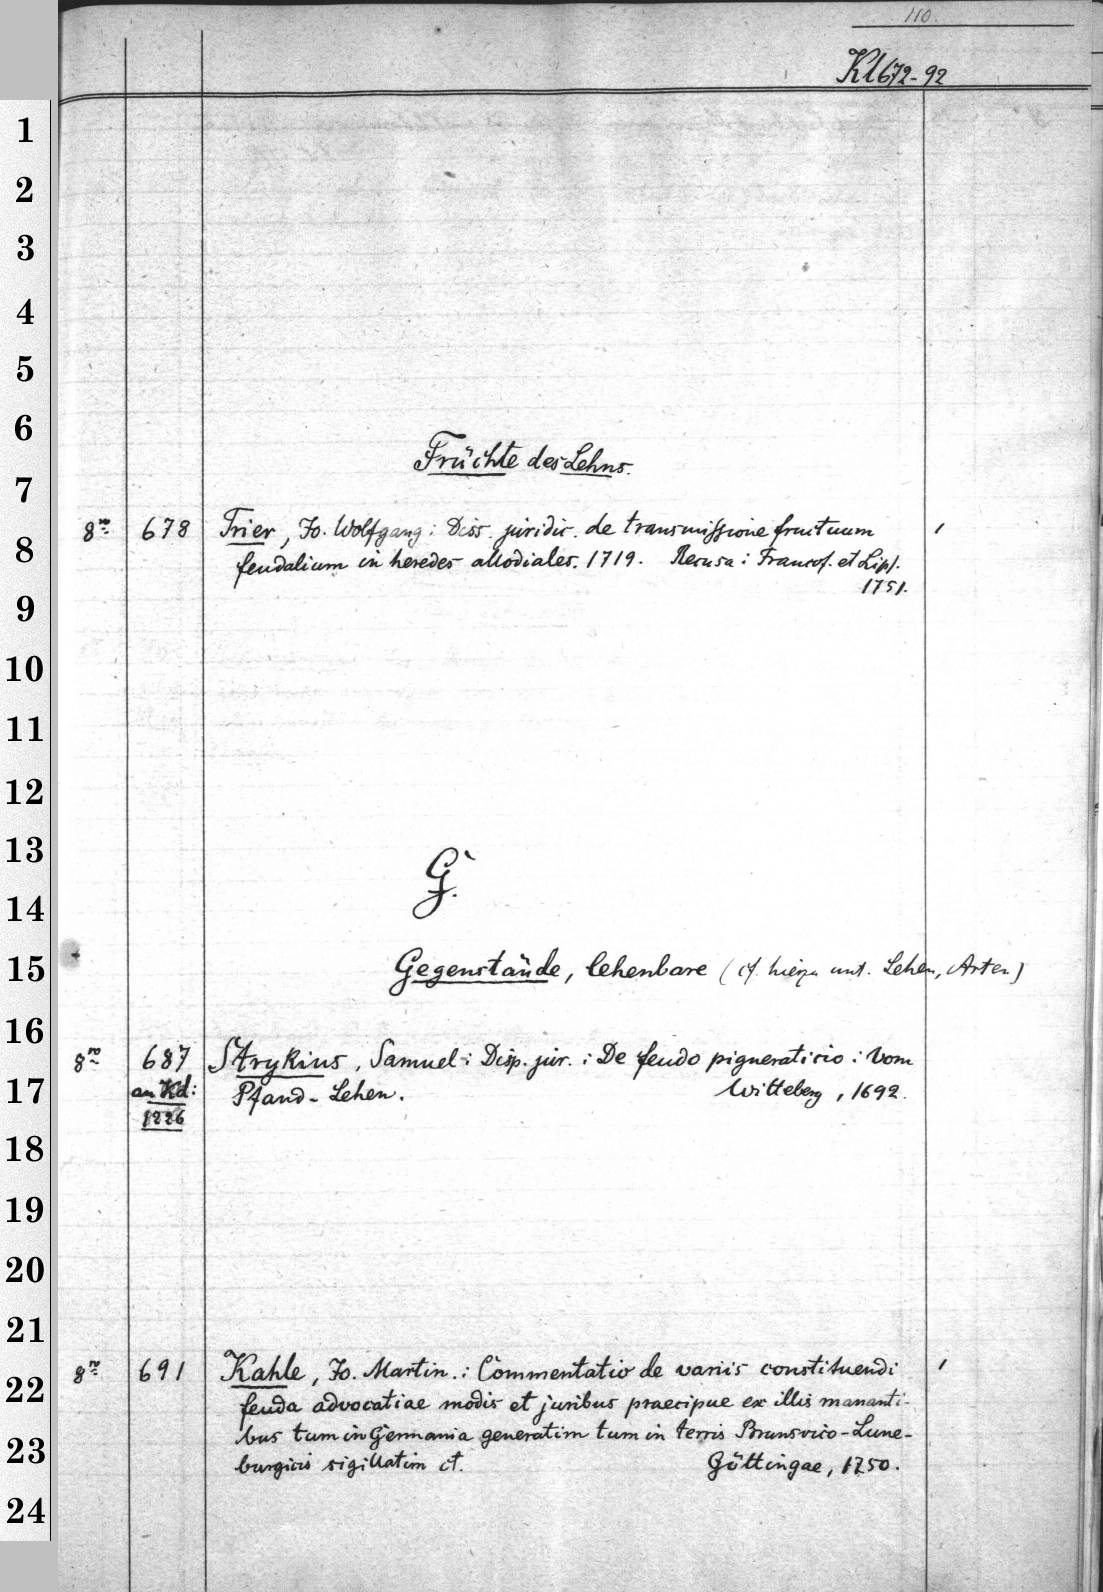 110.
Kl672-92
1
2
3
4
5
6
Früchte des Lehns.
7
8ro 678 Trier, Jo. Wolfgang: Diss. juridic. de transmissione fructuum
8
feudalium in heredes allodiales. 1719. Recusa: Francof. et Lips.
1751.
9
10
11
12
13
G.
14
15
Gegenstände, lehenbare (cf. hierzu unt. Lehen, Arten)
16
8ro 687 Strykius, Samuel: Disp. jur.: De feudo pigneraticio: Vom
17
an Kd: Pfand-Lehen. Witteberg, 1692.
1226
18
19
20
21
8ro 691 Kahle, Jo. Martin.: Commentatio de variis constituendi
22
feuda advocatiae modis et juribus praecipue ex illis mananti-
bus tum in Germania generatim tum in terris Brunsvico-Lune-
23
burgicis sigillatim ct. Göttingae, 1750.
24